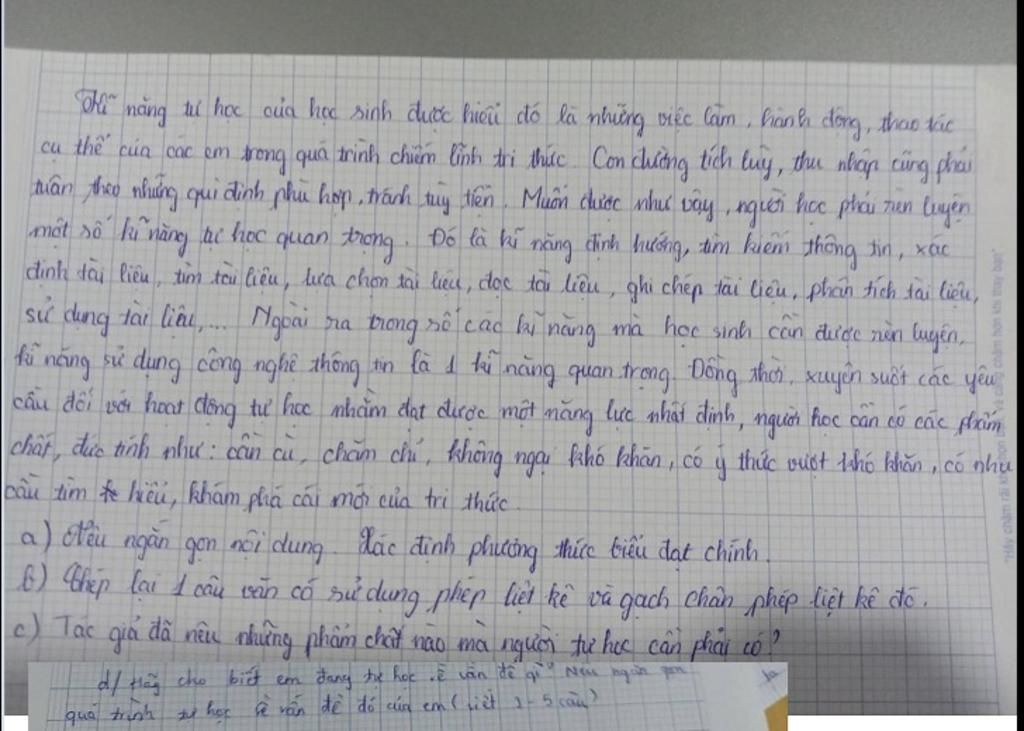 Kĩ năng tự học của học sinh được hiểu đó là những việc làm, hành động, thao tác
cụ thể của các em trong quá trình chiếm lĩnh tri thức. Con đường tích lũy, thu nhập cũng phải
tuân theo những qui định phù hợp, tránh tùy tiện. Muốn được như vậy, người học phải rèn luyện
một số kĩ năng tự học quan trọng. Đó là kĩ năng định hướng, tìm kiếm thông tin, xác
định tài liệu, tìm tài liệu, lựa chọn tài liệu, đọc tài liệu, ghi chép tài liệu, phân tích tài liệu,
sử dụng tài liệu,... Ngoài ra trong số các kĩ năng mà học sinh cần được rèn luyện,
kĩ năng sử dụng công nghệ thông tin là 1 kĩ năng quan trọng. Đồng thời, xuyên suốt các yêu
cầu đối với hoạt động tự học nhằm đạt được một năng lực nhất định, người học cần có các phẩm
chất, đức tính như: cần cù, chăm chỉ, không ngại khó khăn, có ý thức vượt khó khăn, có nhu
cầu tìm hiểu, khám phá cái mới của tri thức.
a) Nêu ngắn gọn nội dung. Xác định phương thức biểu đạt chính.
b) Chép lại 1 câu văn có sử dụng phép liệt kê và gạch chân phép liệt kê đó.
c) Tác giả đã nêu những phẩm chất nào mà người tự học cần phải có?
d/ Hãy cho biết em đang tự học về vấn đề gì? Nêu ngắn gọn
quá trình tự học về vấn đề đó của em (viết 3-5 câu)